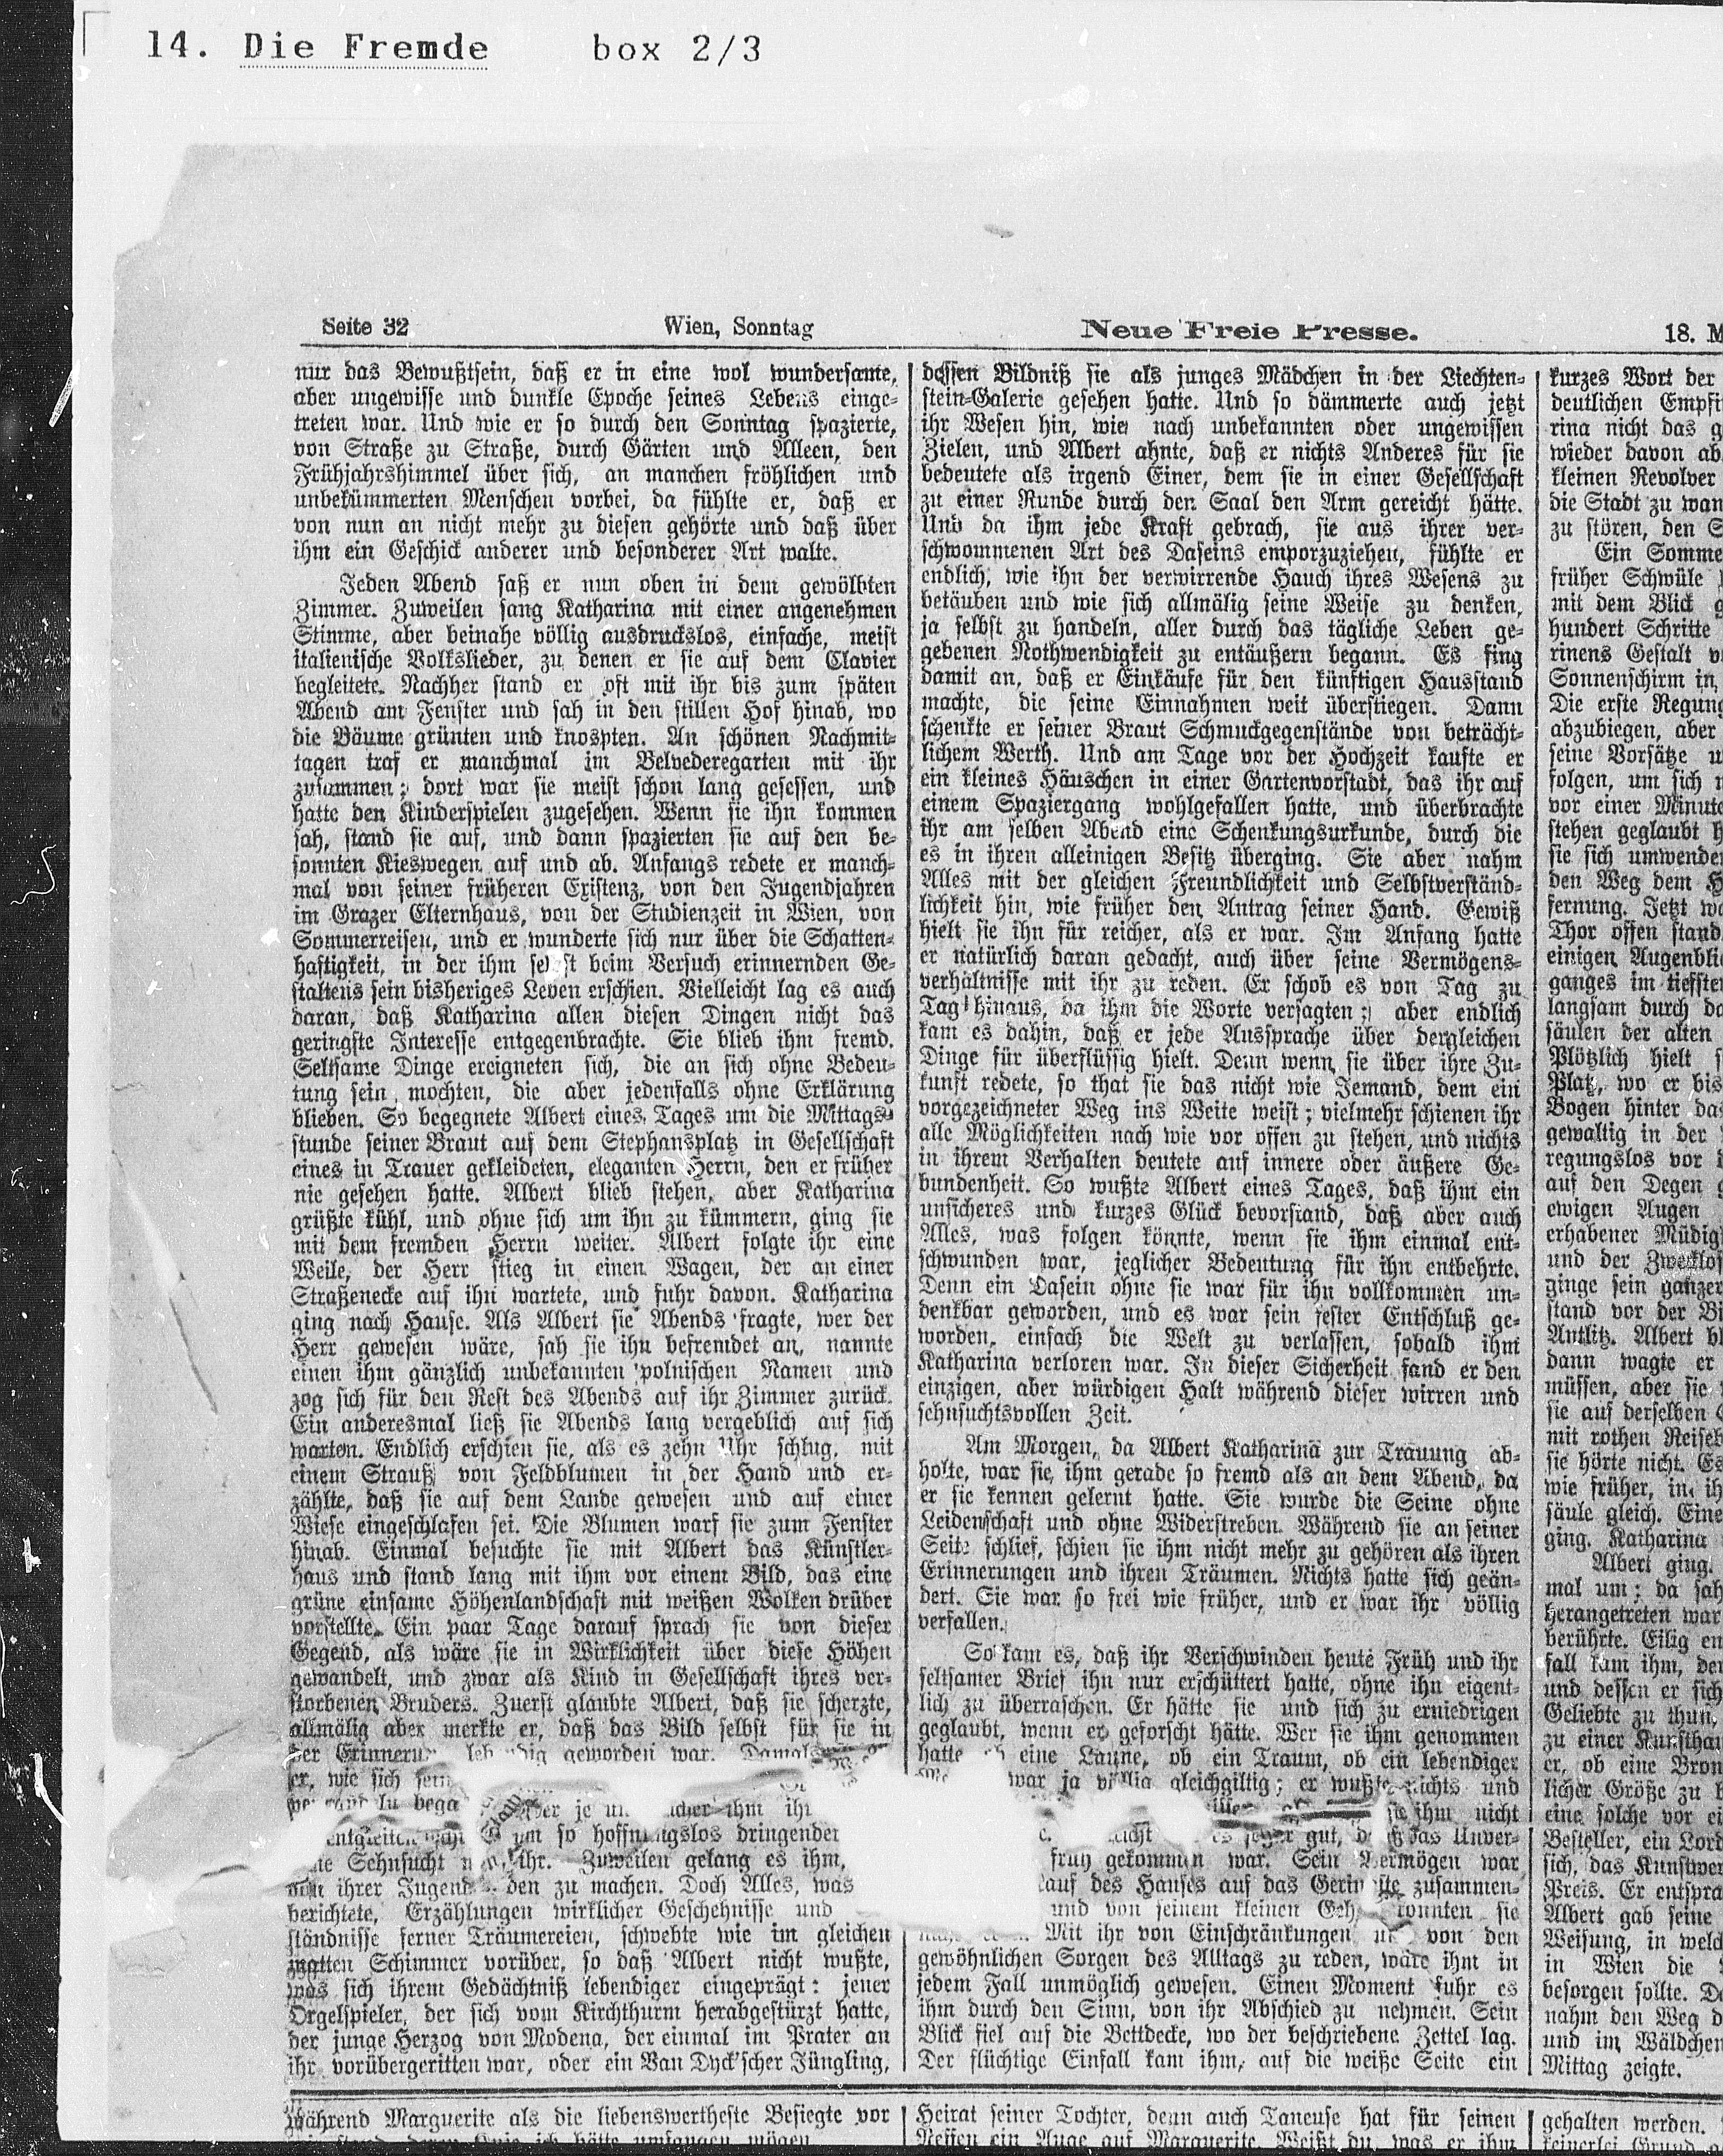 14. Die Fremde box 2/3
Seite 32 Wien, Sonntag Neue Freie Presse. 18. M
nur das Bewußtsein, daß er in eine wol wundersame,
aber ungewisse und dunkle Epoche seines Lebens einge-
treten war. Und wie er so durch den Sonntag spazierte,
von Straße zu Straße, durch Gärten und Alleen, den
Frühjahrshimmel über sich, an manchen fröhlichen und
unbekümmerten Menschen vorbei, da fühlte er, daß er
von nun an nicht mehr zu diesen gehörte und daß über
ihm ein Geschick anderer und besonderer Art walte.
Jeden Abend saß er nun oben in dem gewölbten
Zimmer. Zuweilen sang Katharina mit einer angenehmen
Stimme, aber beinahe völlig ausdruckslos, einfache, meist
italienische Volkslieder, zu denen er sie auf dem Clavier
begleitete. Nachher stand er oft mit ihr bis zum späten
Abend am Fenster und sah in den stillen Hof hinab, wo
die Bäume grünten und knospten. An schönen Nachmit-
tagen traf er manchmal im Belvederegarten mit ihr
zusammen; dort war sie meist schon lang gesessen, und
hatte den Kinderspielen zugesehen. Wenn sie ihn kommen
sah, stand sie auf, und dann spazierten sie auf den be-
sonnten Kieswegen auf und ab. Anfangs redete er manch-
mal von seiner früheren Existenz, von den Jugendjahren
im Grazer Elternhaus, von der Studienzeit in Wien, von
Sommerreisen, und er wunderte sich nur über die Schatten-
haftigkeit, in der ihm selbst beim Versuch erinnernden Ge-
staltens sein bisheriges Leben erschien. Vielleicht lag es auch
daran, daß Katharina allen diesen Dingen nicht das
geringste Interesse entgegenbrachte. Sie blieb ihm fremd.
Seltsame Dinge ereigneten sich, die an sich ohne Bedeu-
tung sein mochten, die aber jedenfalls ohne Erklärung
blieben. So begegnete Albert eines Tages um die Mittags-
stunde seiner Braut auf dem Stephansplatz in Gesellschaft
eines in Trauer gekleideten, eleganten Herrn, den er früher
nie gesehen hatte. Albert blieb stehen, aber Katharina
grüßte kühl, und ohne sich um ihn zu kümmern, ging sie
mit dem fremden Herrn weiter. Albert folgte ihr eine
Weile, der Herr stieg in einen Wagen, der an einer
Straßenecke auf ihn wartete, und fuhr davon. Katharina
ging nach Hause. Als Albert sie Abends fragte, wer der
Herr gewesen wäre, sah sie ihn befremdet an, nannte
einen ihm gänzlich unbekannten polnischen Namen und
zog sich für den Rest des Abends auf ihr Zimmer zurück.
Ein anderesmal ließ sie Abends lang vergeblich auf sich
warten. Endlich erschien sie, als es zehn Uhr schlug, mit
einem Strauß von Feldblumen in der Hand und er-
zählte, daß sie auf dem Lande gewesen und auf einer
Wiese eingeschlafen sei. Die Blumen warf sie zum Fenster
hinab. Einmal besuchte sie mit Albert das Künstler-
haus und stand lang mit ihm vor einem Bild, das eine
grüne einsame Höhenlandschaft mit weißen Wolken drüber
vorstellte. Ein paar Tage darauf sprach sie von dieser
Gegend, als wäre sie in Wirklichkeit über diese Höhen
gewandelt, und zwar als Kind in Gesellschaft ihres ver-
storbenen Bruders. Zuerst glaubte Albert, daß sie scherzte,
allmälig aber merkte er, daß das Bild selbst für sie in
der Erinnerung lebendig geworden war. Damals
er, wie sich sein
je ihm
um so hoffnungslos dringender
Sehnsucht ihr. Zuweilen gelang es ihm,
ihrer Jugend den zu machen. Doch Alles, was
berichtete, Erzählungen wirklicher Geschehnisse und
ständnisse ferner Träumereien, schwebte wie im gleichen
matten Schimmer vorüber, so daß Albert nicht wußte,
was sich ihrem Gedächtniß lebendiger eingeprägt: jener
Orgelspieler, der sich vom Kirchthurm herabgestürzt hatte,
der junge Herzog von Modena, der einmal im Prater an
ihr vorübergeritten war, oder ein Van Dyck'scher Jüngling,
während Marguerite als die liebenswertheste Besiegte vor
dessen Bildniß sie als junges Mädchen in der Liechten-
stein-Galerie gesehen hatte. Und so dämmerte auch jetzt
ihr Wesen hin, wie nach unbekannten oder ungewissen
Zielen, und Albert ahnte, daß er nichts Anderes für sie
bedeutete als irgend Einer, dem sie in einer Gesellschaft
zu einer Runde durch den Saal den Arm gereicht hätte.
Und da ihm jede Kraft gebrach, sie aus ihrer ver-
schwommenen Art des Daseins emporzuziehen, fühlte er
endlich, wie ihn der verwirrende Hauch ihres Wesens zu
betäuben und wie sich allmälig seine Weise zu denken,
ja selbst zu handeln, aller durch das tägliche Leben ge-
gebenen Nothwendigkeit zu entäußern begann. Es fing
damit an, daß er Einkäufe für den künftigen Hausstand
machte, die seine Einnahmen weit überstiegen. Dann
schenkte er seiner Braut Schmuckgegenstände von beträcht-
lichem Werth. Und am Tage vor der Hochzeit kaufte er
ein kleines Häuschen in einer Gartenvorstadt, das ihr auf
einem Spaziergang wohlgefallen hatte, und überbrachte
ihr am selben Abend eine Schenkungsurkunde, durch die
es in ihren alleinigen Besitz überging. Sie aber nahm
Alles mit der gleichen Freundlichkeit und Selbstverständ-
lichkeit hin, wie früher den Antrag seiner Hand. Gewiß
hielt sie ihn für reicher, als er war. Im Anfang hatte
er natürlich daran gedacht, auch über seine Vermögens-
verhältnisse mit ihr zu reden. Er schob es von Tag zu
Tag hinaus, da ihm die Worte versagten; aber endlich
kam es dahin, daß er jede Aussprache über dergleichen
Dinge für überflüssig hielt. Denn wenn sie über ihre Zu-
kunft redete, so that sie das nicht wie Jemand, dem ein
vorgezeichneter Weg ins Weite weist; vielmehr schienen ihr
alle Möglichkeiten nach wie vor offen zu stehen, und nichts
in ihrem Verhalten deutete auf innere oder äußere Ge-
bundenheit. So wußte Albert eines Tages, daß ihm ein
unsicheres und kurzes Glück bevorstand, daß aber auch
Alles, was folgen könnte, wenn sie ihm einmal ent-
schwunden war, jeglicher Bedeutung für ihn entbehrte.
Denn ein Dasein ohne sie war für ihn vollkommen un-
denkbar geworden, und es war sein fester Entschluß ge-
worden, einfach die Welt zu verlassen, sobald ihm
Katharina verloren war. In dieser Sicherheit fand er den
einzigen, aber würdigen Halt während dieser wirren und
sehnsuchtsvollen Zeit.
Am Morgen, da Albert Katharina zur Trauung ab-
holte, war sie ihm gerade so fremd als an dem Abend, da
er sie kennen gelernt hatte. Sie wurde die Seine ohne
Leidenschaft und ohne Widerstreben. Während sie an seiner
Seite schlief, schien sie ihm nicht mehr zu gehören als ihren
Erinnerungen und ihren Träumen. Nichts hatte sich geän-
dert. Sie war so frei wie früher, und er war ihr völlig
verfallen.
So kam es, daß ihr Verschwinden heute Früh und ihr
seltsamer Brief ihn nur erschüttert hatte, ohne ihn eigent-
lich zu überraschen. Er hätte sie und sich zu erniedrigen
geglaubt, wenn er geforscht hätte. Wer sie ihm genommen
hatte ob eine Laune, ob ein Traum, ob ein lebendiger
war ja völlig gleichgiltig; er wußte nichts und
sie ihm nicht
gut, daß das Unver-
früh gekommen war. Sein Vermögen war
des Hauses auf das Geringste zusammen-
und von seinem kleinen konnten sie
Mit ihr von Einschränkungen und von den
gewöhnlichen Sorgen des Alltags zu reden, wäre ihm in
jedem Fall unmöglich gewesen. Einen Moment fuhr es
ihm durch den Sinn, von ihr Abschied zu nehmen. Sein
Blick fiel auf die Bettdecke, wo der beschriebene Zettel lag.
Der flüchtige Einfall kam ihm, auf die weiße Seite ein
Heirat seiner Tochter, denn auch Taneuse hat für seinen
Neffen ein Auge auf Marguerite. Weißt du, was er ihm
kurzes Wort der
deutlichen Empfi
rina nicht das g
wieder davon ab
kleinen Revolver
die Stadt zu wan
zu stören, den S
Ein Somme
früher Schwüle
mit dem Blick g
hundert Schritte
rinens Gestalt v
Sonnenschirm in
Die erste Regung
abzubiegen, aber
seine Vorsätze u
folgen, um sich
vor einer Minute
stehen geglaubt h
sie sich umwenden
den Weg dem H
fernung. Jetzt wa
Thor offen stand
einigen Augenblic
ganges im tiefsten
langsam durch da
säulen der alten
Plötzlich hielt s
Platz, wo er bis
Bogen hinter das
gewaltig in der
regungslos vor
auf den Degen g
ewigen Augen
erhabener Müdig
und der Zwecklos
ginge sein ganzer
stand vor der Bi
Antlitz. Albert bl
dann wagte er
müssen, aber sie
sie auf derselben
mit rothen Reiseb
sie hörte nicht. Es
wie früher, in ih
säule gleich. Eine
ging. Katharina
Albert ging.
mal um; da sah
herangetreten war
berührte. Eilig en
fall kam ihm, den
und dessen er sich
Geliebte zu thun,
zu einer Kunsthan
er, ob eine Bron
licher Größe zu b
eine solche vor ei
Besteller, ein Lord
sich, das Kunstwer
Preis. Er entspra
Albert gab seine
Weisung, in welch
in Wien die
besorgen sollte. Da
nahm den Weg d
und im Wäldchen
Mittag zeigte.
gehalten werden.